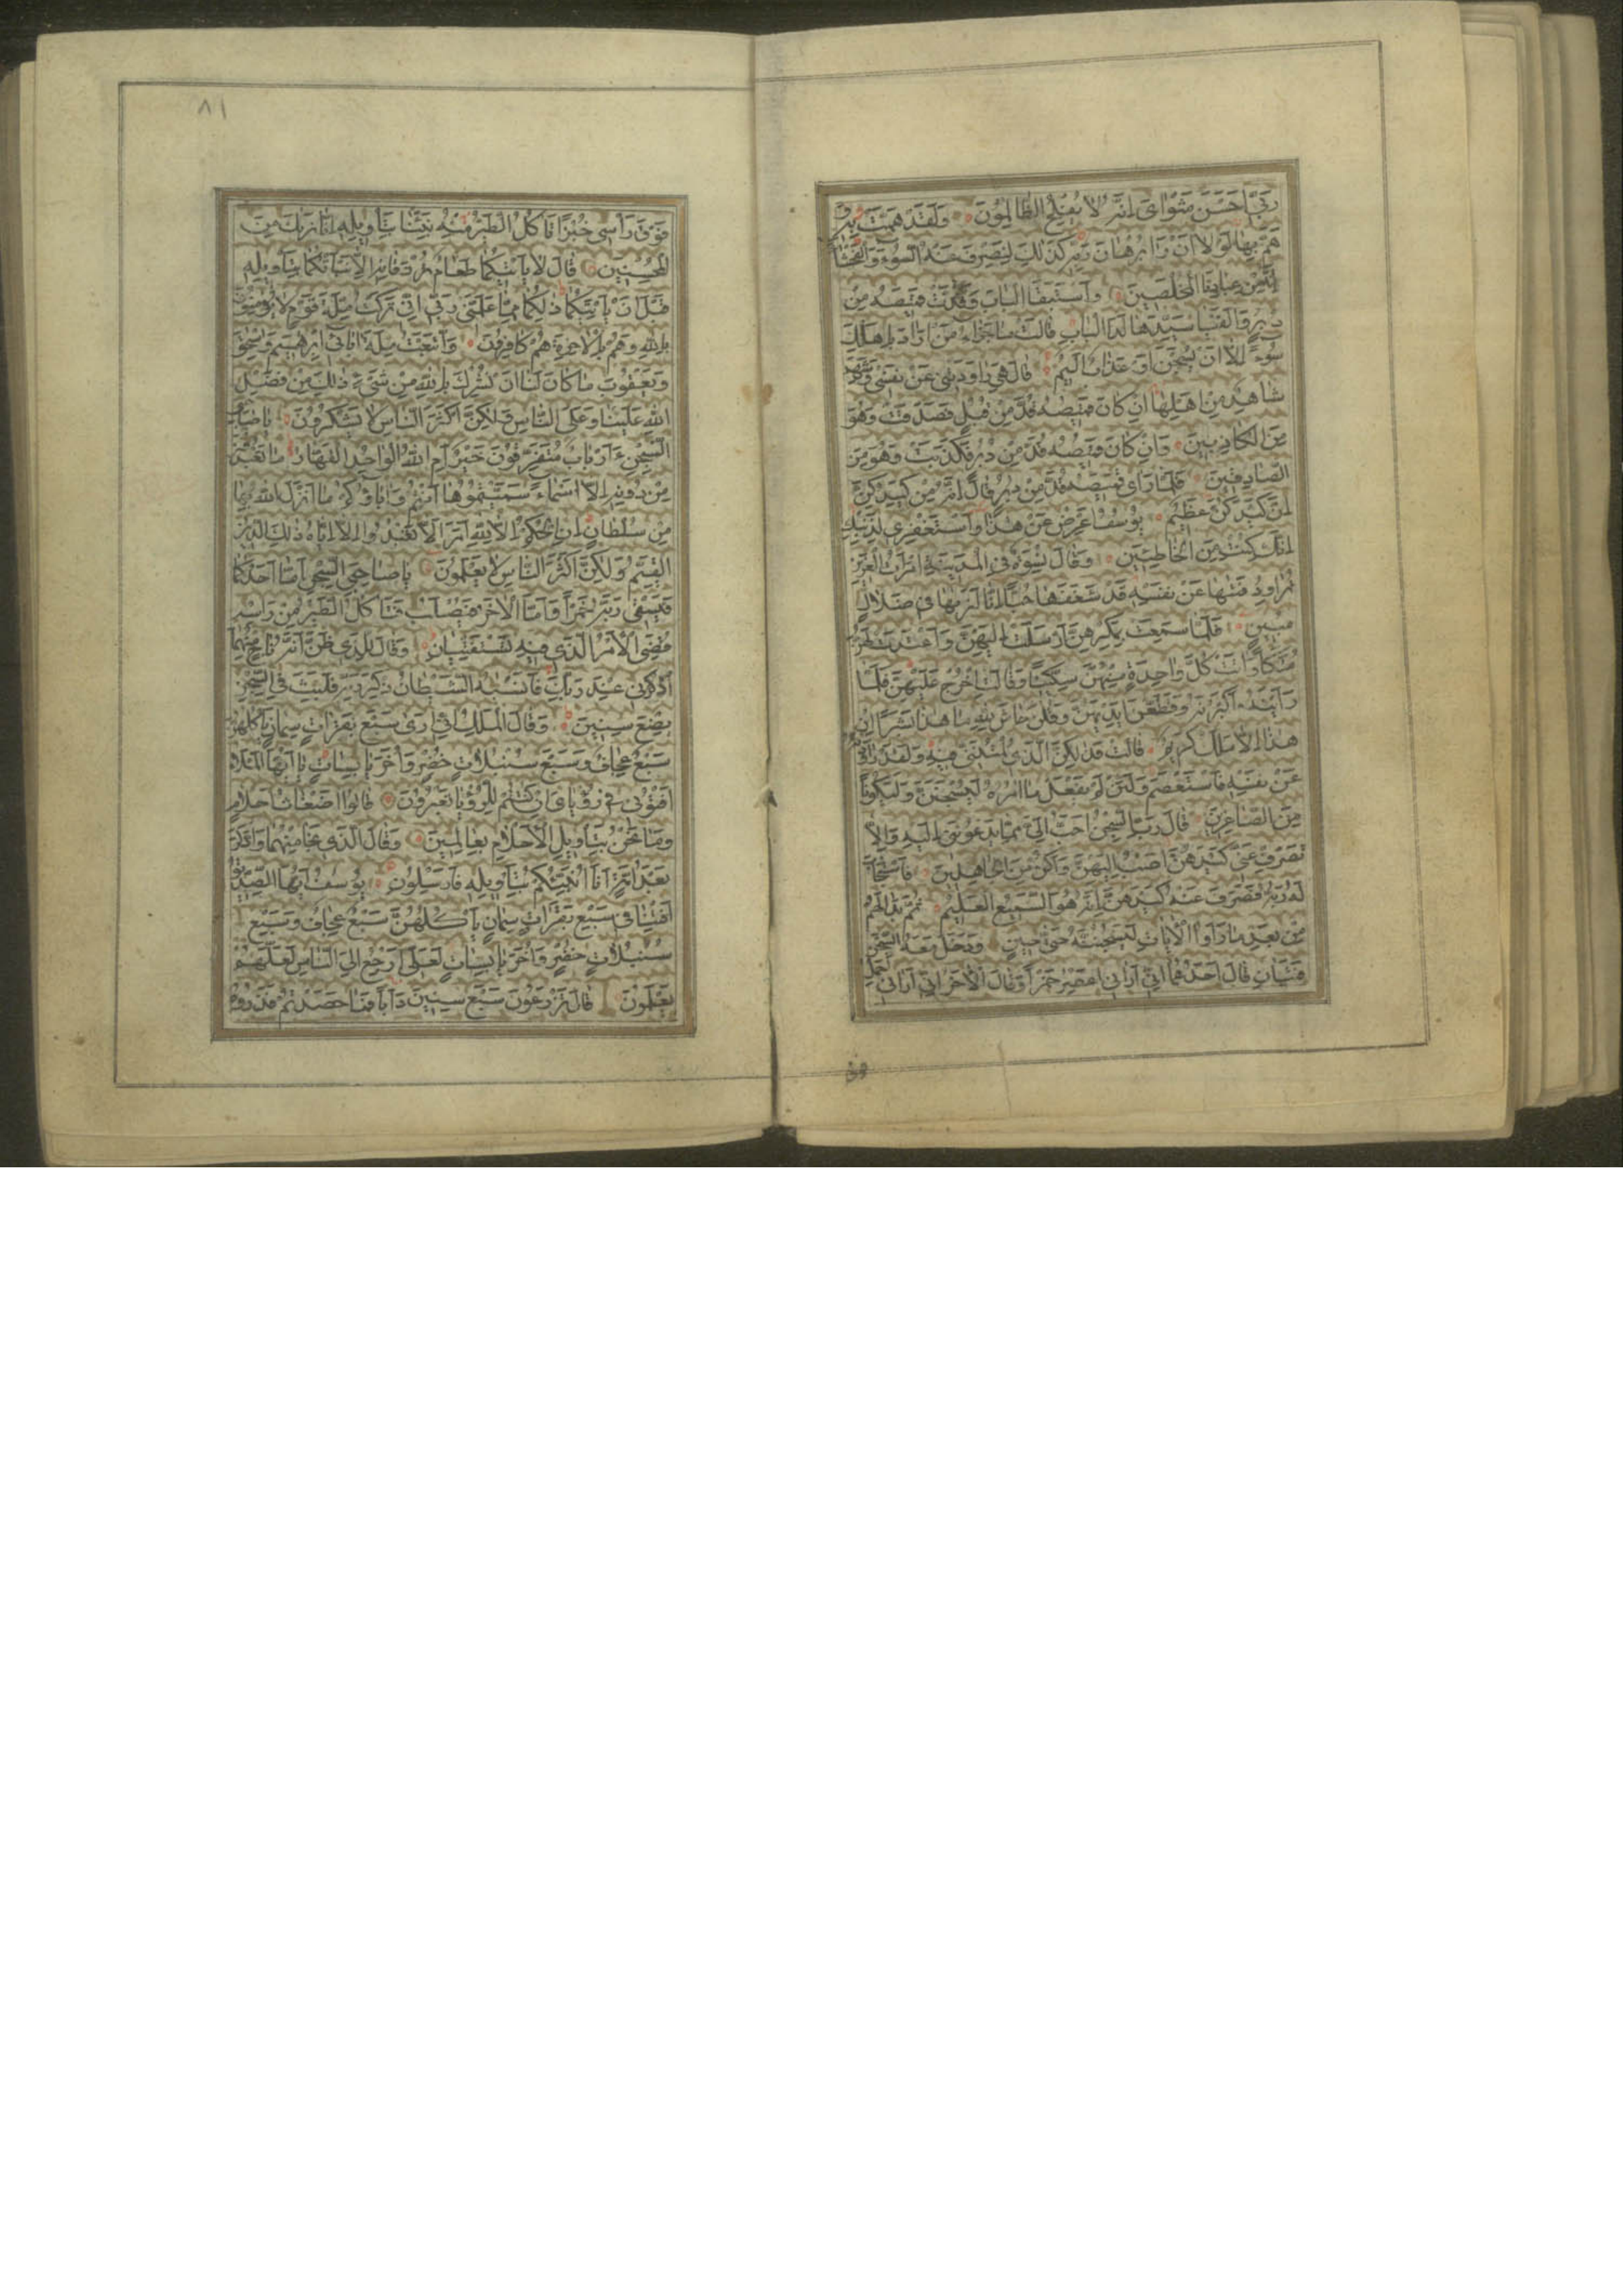 رَبّي اَحْسَنَ مَثْوٰايَ اِنَّهُ لاٰ يُفْلِحُ الظّٰالِمُونَ وَلَقَدْ هَمَّتْ بِهِ وَ
هَمَّ بِهٰا لَوْلاٰ اَنْ رَاٰ بُرْهٰانَ رَبِّهِ كَذٰلِكَ لِنَصْرِفَ عَنْهُ السُّوءَ وَالْفَحْشٰاءَ
اِنَّهُ مِنْ عِبٰادِنَا الْمُخْلَصينَ وَاسْتَبَقَا الْبٰابَ وَقَدَّتْ قَميصَهُ مِنْ
دُبُرٍ وَاَلْفَيٰا سَيِّدَهٰا لَدَا الْبٰابِ قٰالَتْ مٰا جَزٰاءُ مَنْ اَرٰادَ بِاَهْلِكَ
سُوءً اِلاّٰ اَنْ يُسْجَنَ اَوْ عَذٰابٌ اَليمٌ قٰالَ هِيَ رٰاوَدَتْني عَنْ نَفْسي وَشَهِدَ
شٰاهِدٌ مِنْ اَهْلِهٰا اِنْ كٰانَ قَميصُهُ قُدَّ مِنْ قُبُلٍ فَصَدَقَتْ وَهُوَ
مِنَ الْكٰاذِبينَ وَاِنْ كٰانَ قَميصُهُ قُدَّ مِنْ دُبُرٍ فَكَذَبَتْ وَهُوَ مِنَ
الصّٰادِقينَ فَلَمّٰا رَاٰى قَميصَهُ قُدَّ مِنْ دُبُرٍ قٰالَ اِنَّهُ مِنْ كَيْدِكُنَّ
اِنَّ كَيْدَكُنَّ عَظيمٌ يُوسُفُ اَعْرِضْ عَنْ هٰذٰا وَاسْتَغْفِري لِذَنْبِكِ
اِنَّكِ كُنْتِ مِنَ الْخٰاطِئينَ وَقٰالَ نِسْوَةٌ فِي الْمَدينَةِ امْرَاَتُ الْعَزيزِ
تُرٰاوِدُ فَتٰيهٰا عَنْ نَفْسِهِ قَدْ شَغَفَهٰا حُبًّا اِنّٰا لَنَرٰيهٰا في ضَلاٰلٍ
مُبينٍ فَلَمّٰا سَمِعَتْ بِمَكْرِهِنَّ اَرْسَلَتْ اِلَيْهِنَّ وَاَعْتَدَتْ لَهُنَّ
مُتَّكَاً وَاٰتَتْ كُلَّ وٰاحِدَةٍ مِنْهُنَّ سِكّينًا وَقٰالَتِ اخْرُجْ عَلَيْهِنَّ فَلَمّٰا
رَاَيْنَهُ اَكْبَرْنَهُ وَقَطَّعْنَ اَيْدِيَهُنَّ وَقُلْنَ حٰاشَ لِلّٰهِ مٰا هٰذٰا بَشَرًا اِنْ
هٰذٰا اِلاّٰ مَلَكٌ كَريمٌ قٰالَتْ فَذٰلِكُنَّ الَّذي لُمْتُنَّني فيهِ وَلَقَدْ رٰاوَدْتُهُ
عَنْ نَفْسِهِ فَاسْتَعْصَمَ وَلَئِنْ لَمْ يَفْعَلْ مٰا اٰمُرُهُ لَيُسْجَنَنَّ وَلَيَكُونًا
مِنَ الصّٰاغِرينَ قٰالَ رَبِّ السِّجْنُ اَحَبُّ اِلَيَّ مِمّٰا يَدْعُونَني اِلَيْهِ وَاِلاّٰ
تَصْرِفْ عَنّي كَيْدَهُنَّ اَصْبُ اِلَيْهِنَّ وَاَكُنْ مِنَ الْجٰاهِلينَ فَاسْتَجٰابَ
لَهُ رَبُّهُ فَصَرَفَ عَنْهُ كَيْدَهُنَّ اِنَّهُ هُوَ السَّميعُ الْعَليمُ ثُمَّ بَدٰا لَهُمْ
مِنْ بَعْدِ مٰا رَاَوُا الْاٰيٰاتِ لَيَسْجُنُنَّهُ حَتّٰى حينٍ وَدَخَلَ مَعَهُ السِّجْنَ
فَتَيٰانِ قٰالَ اَحَدُهُمٰا اِنّي اَرٰاني اَعْصِرُ خَمْرًا وَقٰالَ الْاٰخَرُ اِنّي اَرٰاني اَحْمِلُ
فوق
٨١
فَوْقَ رَاْسي خُبْزًا تَاْكُلُ الطَّيْرُ مِنْهُ نَبِّئْنٰا بِتَاْويلِهِ اِنّٰا نَرٰيكَ مِنَ
الْمُحْسِنينَ قٰالَ لاٰ يَاْتيكُمٰا طَعٰامٌ تُرْزَقٰانِهِ اِلاّٰ نَبَّاْتُكُمٰا بِتَاْويلِهِ
قَبْلَ اَنْ يَاْتِيَكُمٰا ذٰلِكُمٰا مِمّٰا عَلَّمَني رَبّي اِنّي تَرَكْتُ مِلَّةَ قَوْمٍ لاٰ يُؤْمِنُونَ
بِاللّٰهِ وَهُمْ بِالْاٰخِرَةِ هُمْ كٰافِرُونَ وَاتَّبَعْتُ مِلَّةَ اٰبٰائي اِبْرٰهيمَ وَاِسْحٰقَ
وَيَعْقُوبَ مٰا كٰانَ لَنٰا اَنْ نُشْرِكَ بِاللّٰهِ مِنْ شَيْءٍ ذٰلِكَ مِنْ فَضْلِ
اللّٰهِ عَلَيْنٰا وَعَلَى النّٰاسِ وَلٰكِنَّ اَكْثَرَ النّٰاسِ لاٰ يَشْكُرُونَ يٰا صٰاحِبَيِ
السِّجْنِ ءَاَرْبٰابٌ مُتَفَرِّقُونَ خَيْرٌ اَمِ اللّٰهُ الْوٰاحِدُ الْقَهّٰارُ مٰا تَعْبُدُونَ
مِنْ دُونِهِ اِلاّٰ اَسْمٰاءً سَمَّيْتُمُوهٰا اَنْتُمْ وَاٰبٰاؤُكُمْ مٰا اَنْزَلَ اللّٰهُ بِهٰا
مِنْ سُلْطٰانٍ اِنِ الْحُكْمُ اِلاّٰ لِلّٰهِ اَمَرَ اَلاّٰ تَعْبُدُوا اِلاّٰ اِيّٰاهُ ذٰلِكَ الدّينُ
الْقَيِّمُ وَلٰكِنَّ اَكْثَرَ النّٰاسِ لاٰ يَعْلَمُونَ يٰا صٰاحِبَيِ السِّجْنِ اَمّٰا اَحَدُكُمٰا
فَيَسْقي رَبَّهُ خَمْرًا وَاَمَّا الْاٰخَرُ فَيُصْلَبُ فَتَاْكُلُ الطَّيْرُ مِنْ رَاْسِهِ
قُضِيَ الْاَمْرُ الَّذي فيهِ تَسْتَفْتِيٰانِ وَقٰالَ لِلَّذي ظَنَّ اَنَّهُ نٰاجٍ مِنْهُمَا
اذْكُرْني عِنْدَ رَبِّكَ فَاَنْسٰيهُ الشَّيْطٰانُ ذِكْرَ رَبِّهِ فَلَبِثَ فِي السِّجْنِ
بِضْعَ سِنينَ وَقٰالَ الْمَلِكُ اِنّي اَرٰى سَبْعَ بَقَرٰاتٍ سِمٰانٍ يَاْكُلُهُنَّ
سَبْعٌ عِجٰافٌ وَسَبْعَ سُنْبُلاٰتٍ خُضْرٍ وَاُخَرَ يٰابِسٰاتٍ يٰا اَيُّهَا الْمَلَاُ
اَفْتُوني في رُؤْيٰايَ اِنْ كُنْتُمْ لِلرُّؤْيٰا تَعْبُرُونَ قٰالُوا اَضْغٰاثُ اَحْلاٰمٍ
وَمٰا نَحْنُ بِتَاْويلِ الْاَحْلاٰمِ بِعٰالِمينَ وَقٰالَ الَّذي نَجٰا مِنْهُمٰا وَادَّكَرَ
بَعْدَ اُمَّةٍ اَنَا اُنَبِّئُكُمْ بِتَاْويلِهِ فَاَرْسِلُونِ يُوسُفُ اَيُّهَا الصِّدّيقُ
اَفْتِنٰا في سَبْعِ بَقَرٰاتٍ سِمٰانٍ يَاْكُلُهُنَّ سَبْعٌ عِجٰافٌ وَسَبْعِ
سُنْبُلاٰتٍ خُضْرٍ وَاُخَرَ يٰابِسٰاتٍ لَعَلّي اَرْجِعُ اِلَى النّٰاسِ لَعَلَّهُمْ
يَعْلَمُونَ قٰالَ تَزْرَعُونَ سَبْعَ سِنينَ دَاَبًا فَمٰا حَصَدْتُمْ فَذَرُوهُ